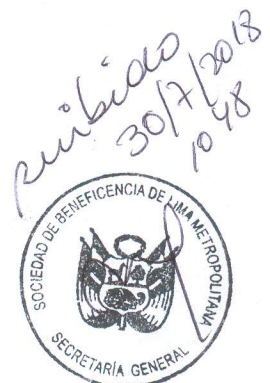 recibido
30/7/2018
10 48
SOCIEDAD DE BENEFICENCIA DE LIMA METROPOLITANA
SECRETARÍA GENERAL